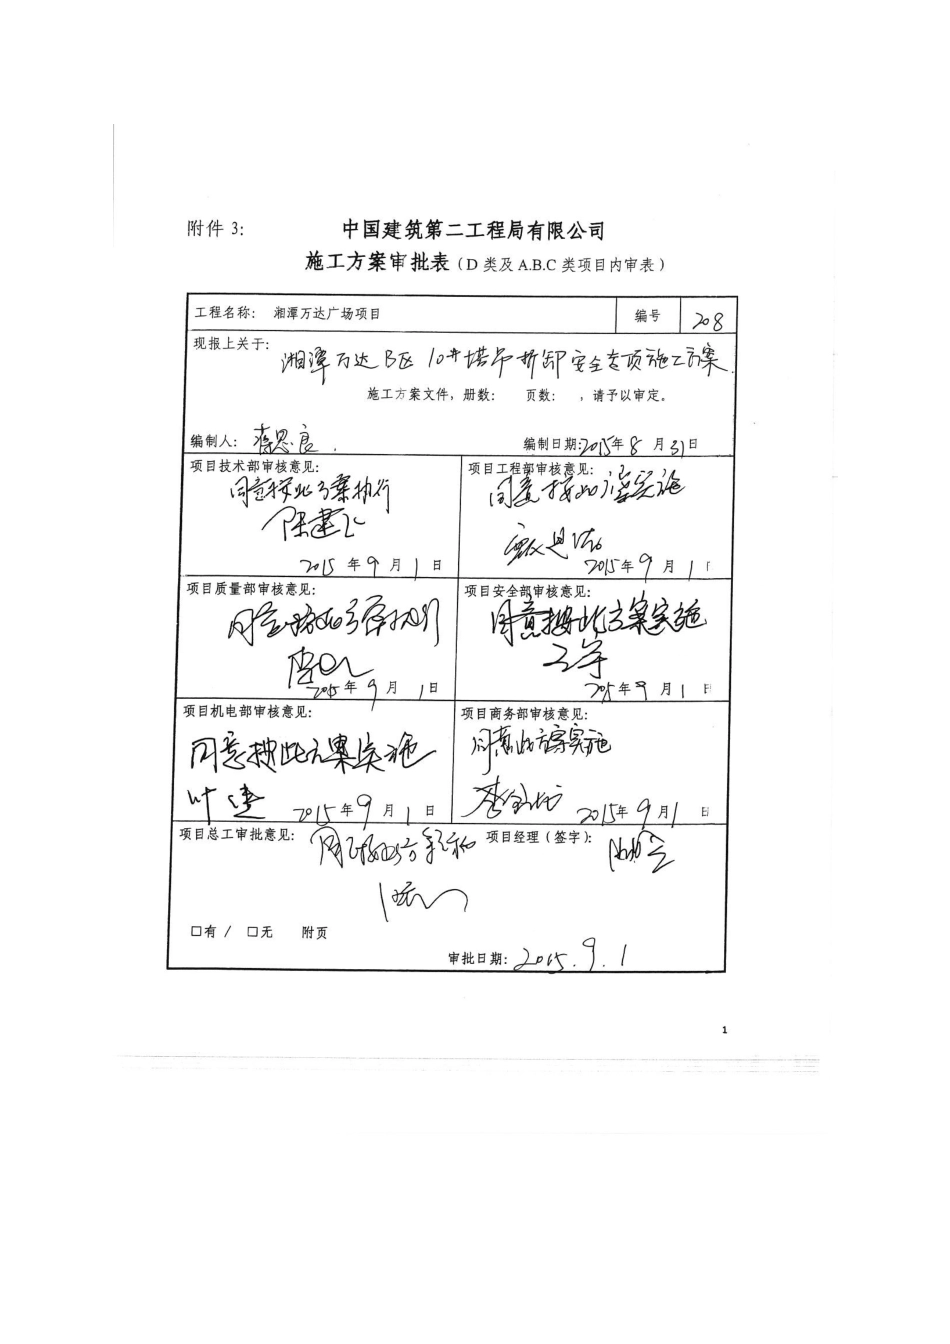 附件 3:
中国建筑第二工程局有限公司
施工方案审批表(D 类及 A.B.C 类项目内审表)
工程名称: 湘潭万达广场项目 编号 208
现报上关于:
湘潭万达B区 10#塔吊拆卸安全专项施工方案
施工方案文件,册数: 页数: ,请予以审定。
编制人: 编制日期:2015年 8 月 31日
项目技术部审核意见: 项目工程部审核意见:
同意按此方案执行 同意按此方案实施
2015 年 9 月 1 日 2015年 9 月 1
项目质量部审核意见: 项目安全部审核意见:
同意按此方案执行 同意按此方案实施
2015年 9 月 1日 2015年 9 月 1 日
项目机电部审核意见: 项目商务部审核意见:
同意按此方案实施 同意此方案实施
2015年 9 月 1 日 2015年 9 月 1 日
项目总工审批意见: 项目经理(签字):
□有 / □无 附页
审批日期: 2015.9.1
1